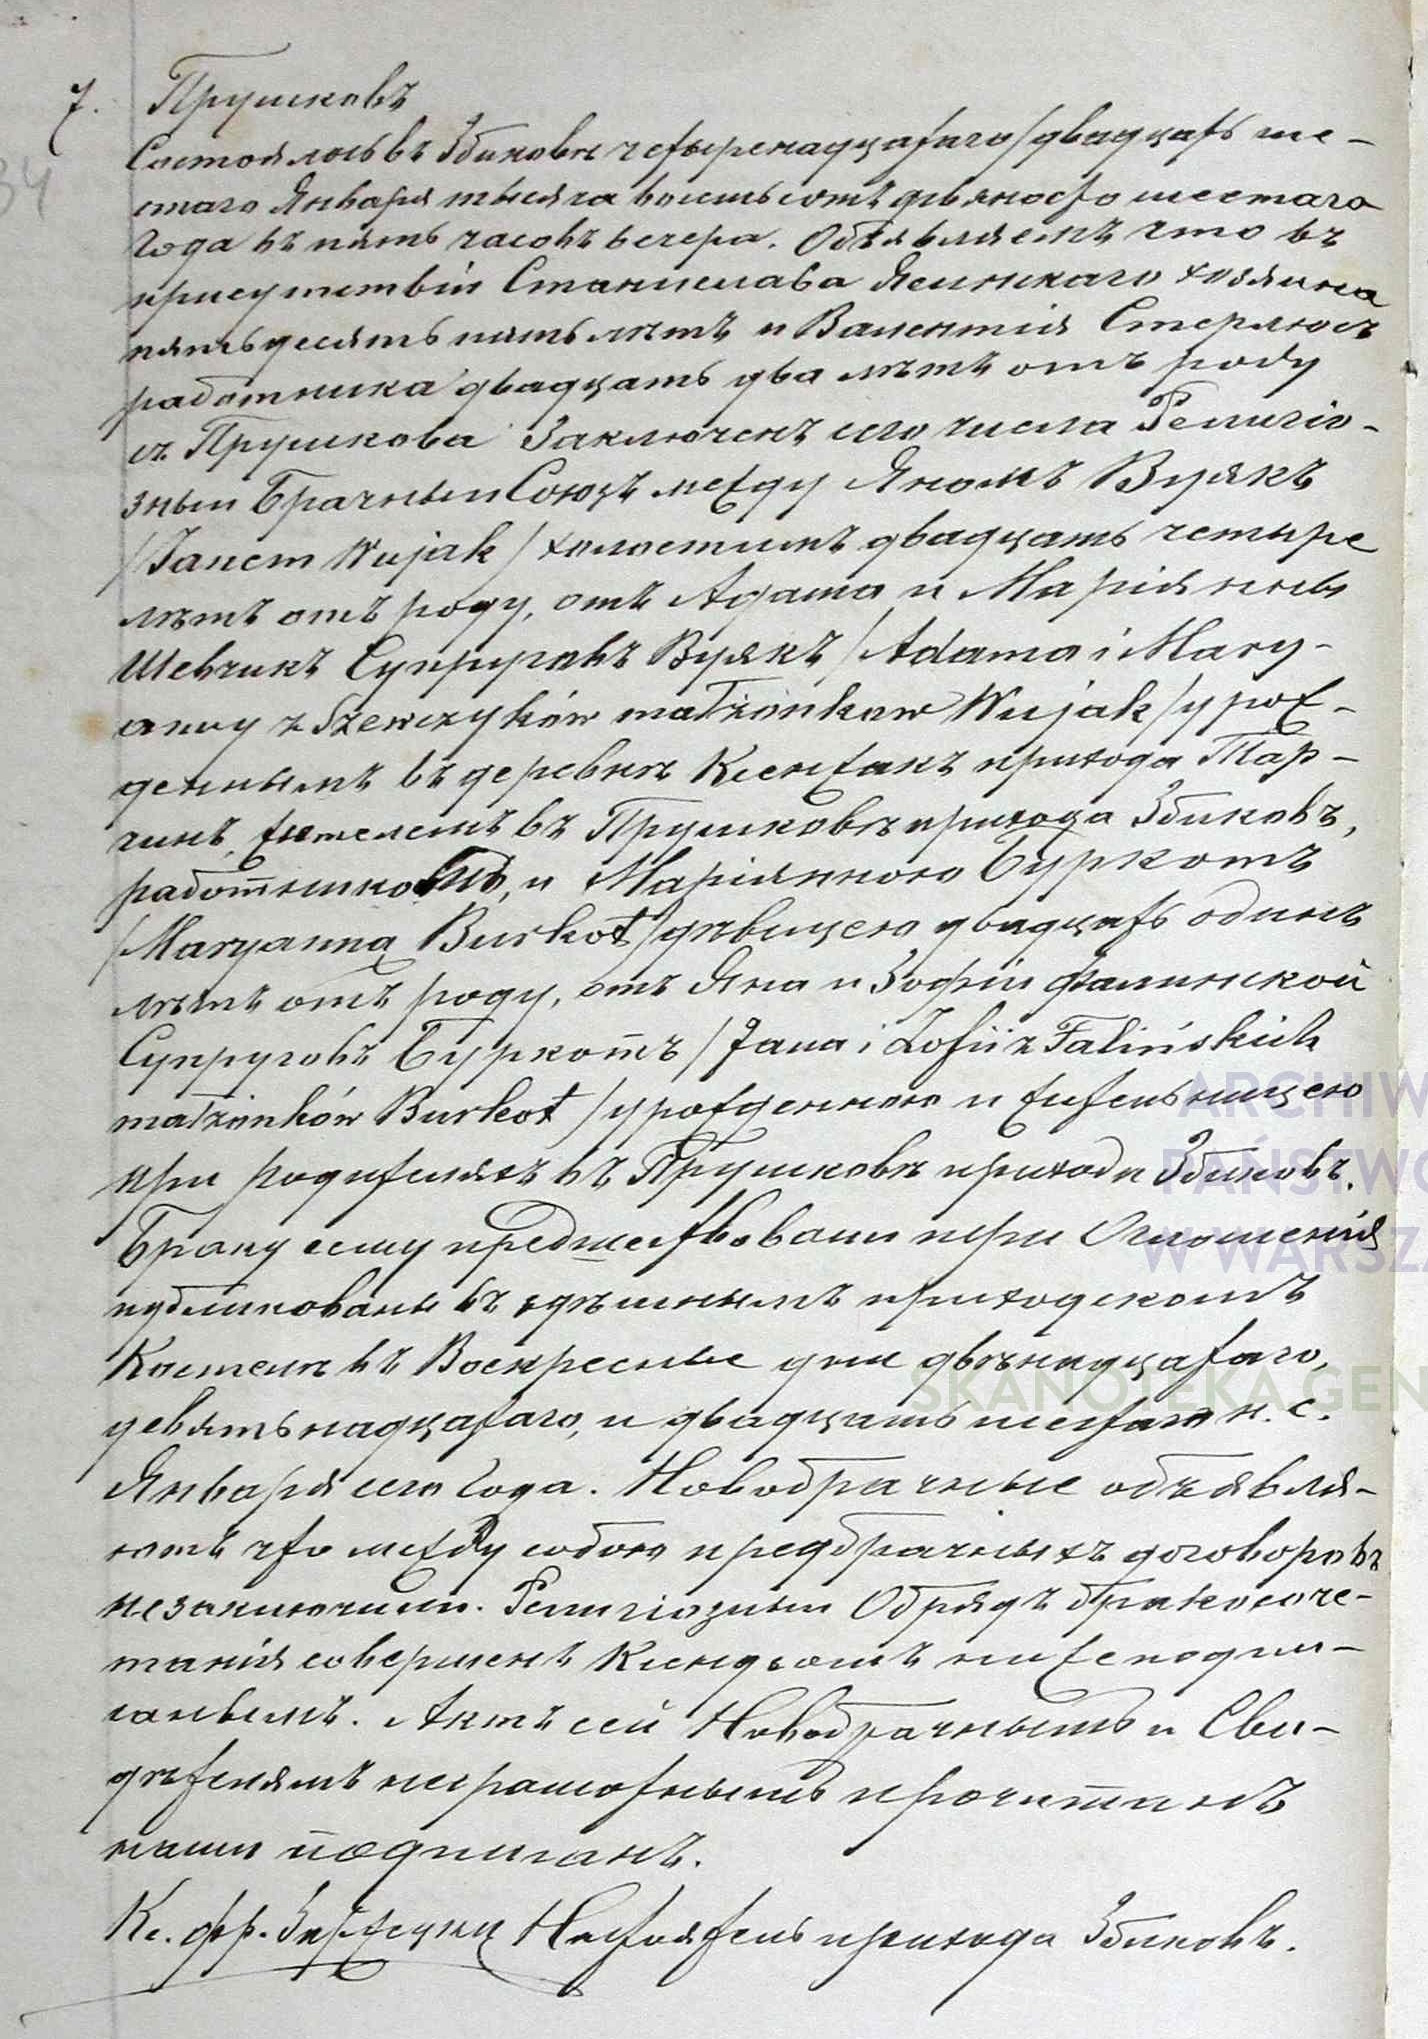 7. Прушковъ
34
Состоялось въ Збиковѣ четыренадцатаго /двадцать ше-
стаго Января тысяча восемьсотъ девяносто шестаго
Года въ пять часовъ вечера. Объявляемъ что въ
присутствіи Станислава Ясинскаго хозяина
пятьдесятъ пять лѣтъ и Валентія Стерлюсъ
работника двадцать два лѣтъ отъ роду
съ Прушкова Заключенъ сего числа Религіо-
зный Брачный Союзъ между Яномъ Вуякъ
/Janem Wujak/ холостымъ двадцать четыре
лѣтъ отъ роду, отъ Адама и Маріянны
Шевчикъ Супруговъ Вуякъ /Adama i Mary-
anny z Szewczyków małżonkow Wujak/ урож-
деннымъ въ деревнѣ Ксенжакъ прихода Тар-
чинъ, жителемъ въ Прушковѣ прихода Збиковъ,
работникомъ, и Маріянною Буркотъ
/Maryanną Burkot/ дѣвицею двадцать одинъ
лѣтъ отъ роду, отъ Яна и Зофіи Фалинской
Супруговъ Буркотъ /Jana i Zofii z Falińskich
małżonków Burkot/ урожденною и жительницею
при родителяхъ въ Прушковѣ прихода Збиковъ.
Браку сему предшествовали три Оглошенія
публикованы въ здѣшнымъ приходскомъ
Костелѣ въ Воскресные дни двѣнадцатаго,
девятьнадцатаго, и двадцать шестаго н. с.
Января сего Года. Новобрачные объявля-
ютъ что между собою предбрачныхъ договоровъ
незаключили. Религіозный Обрядъ бракосоче-
танія совершенъ Ксендзомъ нижеподпи-
саннымъ. Актъ сей Новобрачнымъ и Сви-
дѣтелямъ неграмотнымъ прочитанъ
нами подписанъ.
Кс. Фр. Настоятель прихода Збиковъ.
ARCHIW
PAŃSTWO
W WARSZA
SKANOTEKA.GEN